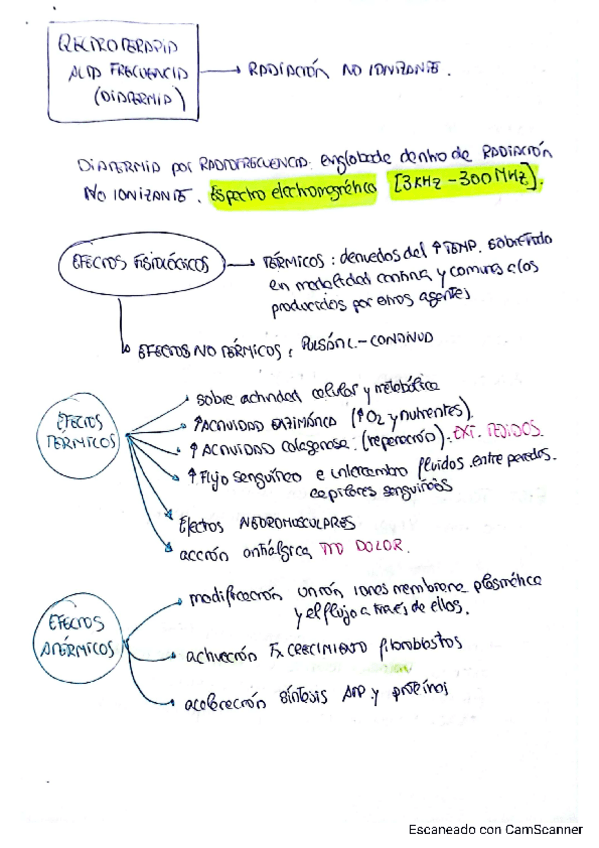 ELECTROTERAPIA
ALTA FRECUENCIA → RADIACIÓN NO IONIZANTE.
(DIATERMIA)
DIATERMIA por RADIOFRECUENCIA: englobade dentro de RADIACIÓN
NO IONIZANTE. Espectro electromagnético [3KHz - 300 MHz].
EFECTOS FISIOLÓGICOS → TÉRMICOS: derivados del ↑TEMP. sobretodo
en modalidad continua y comunes a los
producidos por otros agentes
EFECTOS NO TÉRMICOS: PULSÁTIL - CONTINUO
EFECTOS TÉRMICOS
sobre actividad celular y metabólica
↑ACTIVIDAD ENZIMÁTICA (↑O2 y nutrientes).
↑ ACTIVIDAD colagenasa: (reparación). EXT. TEJIDOS.
↑ Flujo sanguíneo e intercambio fluidos entre paredes
capilares sanguíneos
Efectos NEUROMUSCULARES
acción antiálgica TTO DOLOR.
EFECTOS ATÉRMICOS
modificación unión iones membrana plasmática
y el flujo a través de ellos.
activación Fx CRECIMIENTO fibroblastos
aceleración síntesis ATP y proteínas
Escaneado con CamScanner